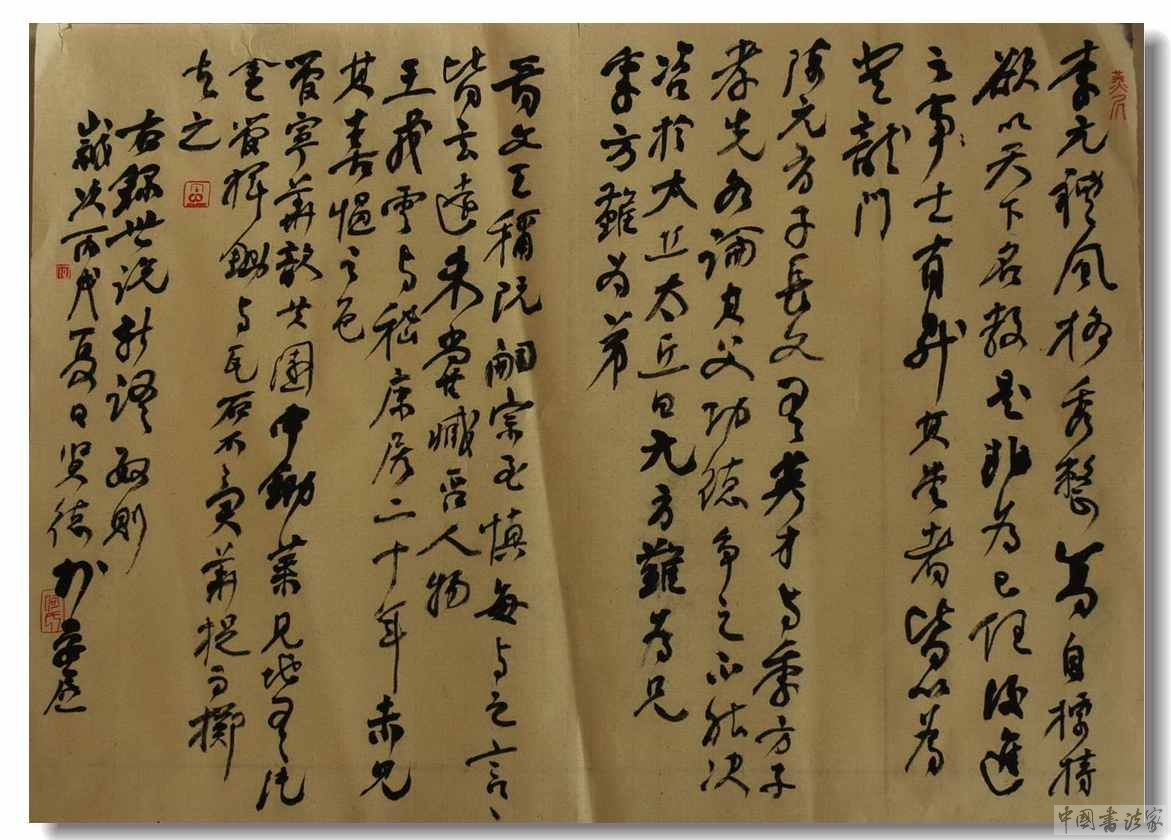 李元礼风格秀整高自标持
欲以天下名教是非为己任后进
之事士有升其堂者皆以为
登龙门
陈元方子长文有英才与季方子
孝先各论其父功德争之不能决
咨於太丘太丘曰元方难为兄
季方难为弟
晋文王称阮嗣宗至慎每与之言言
皆玄远未尝臧否人物
王戎云与嵇康居二十年未见
其喜愠之色
管宁华歆共园中锄菜见地有片
金管挥锄与瓦石不异华捉而掷
去之
右录世说新语数则
岁次丙戌夏日贤德於
中国书法家